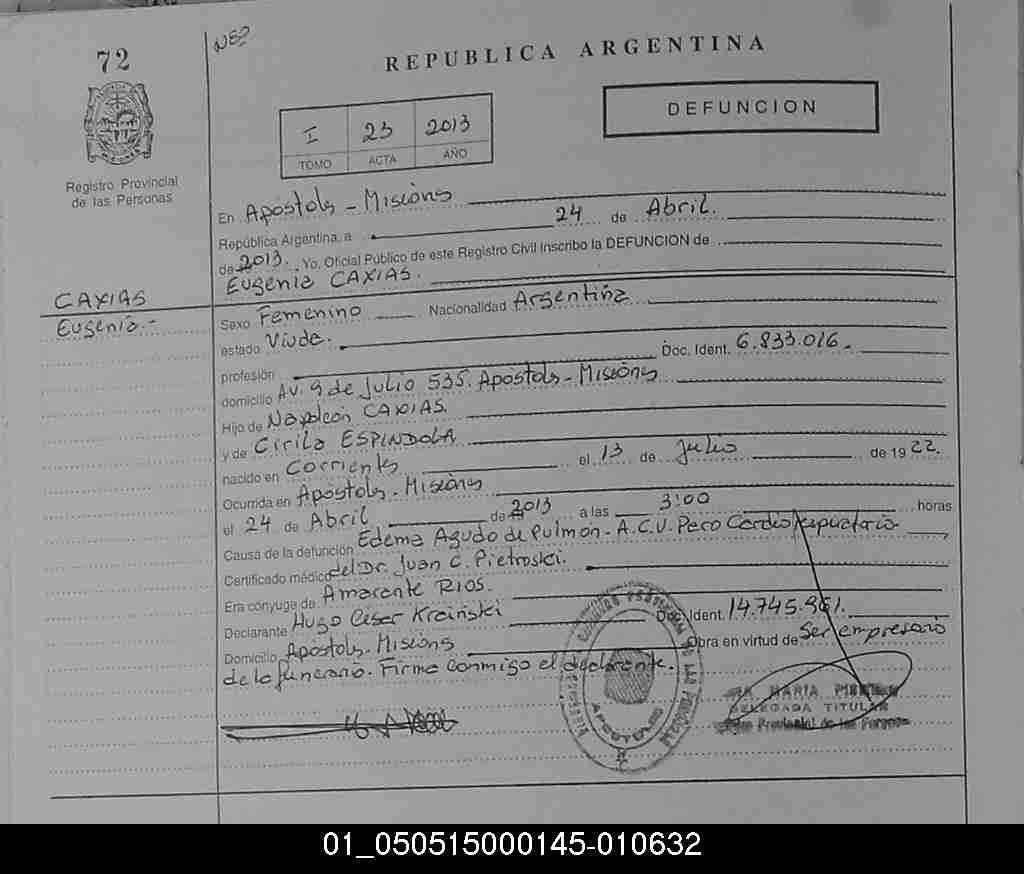 72
NE2
REPUBLICA ARGENTINA
DEFUNCION
I 23 2013
TOMO ACTA AÑO
Registro Provincial
de las Personas
En Apostoles - Misiones
República Argentina, a 24 de Abril.
de 2013. Yo, Oficial Público de este Registro Civil Inscribo la DEFUNCION de
Eugenia CAXIAS.
CAXIAS
Eugenia.-
Sexo Femenino Nacionalidad Argentina
estado Viuda. Doc. Ident. 6.833.016.
profesión
domicilio Av. 9 de Julio 535. Apostoles - Misiones
Hijo de Napoleon CAXIAS.
y de Cirila ESPINDOLA
nacido en Corrientes el 13 de Julio de 1922.
Ocurrida en Apostoles - Misiones
el 24 de Abril de 2013 a las 3:00 horas
Causa de la defunción Edema Agudo de Pulmon - A.C.V. Paro Cardio respiratorio
Certificado médico del Dr. Juan C. Pietroski.
Era cónyuge de Amarante RIOS.
Declarante Hugo Cesar Kraiñski Doc. Ident. 14.745.961.
Domicilio Apostoles - Misiones Obra en virtud de Ser empresario
de la funeraria. Firma conmigo el declarante.
MARIA
DELEGADA TITULAR
Provincial de las Personas
APOSTOLES
01_050515000145-010632